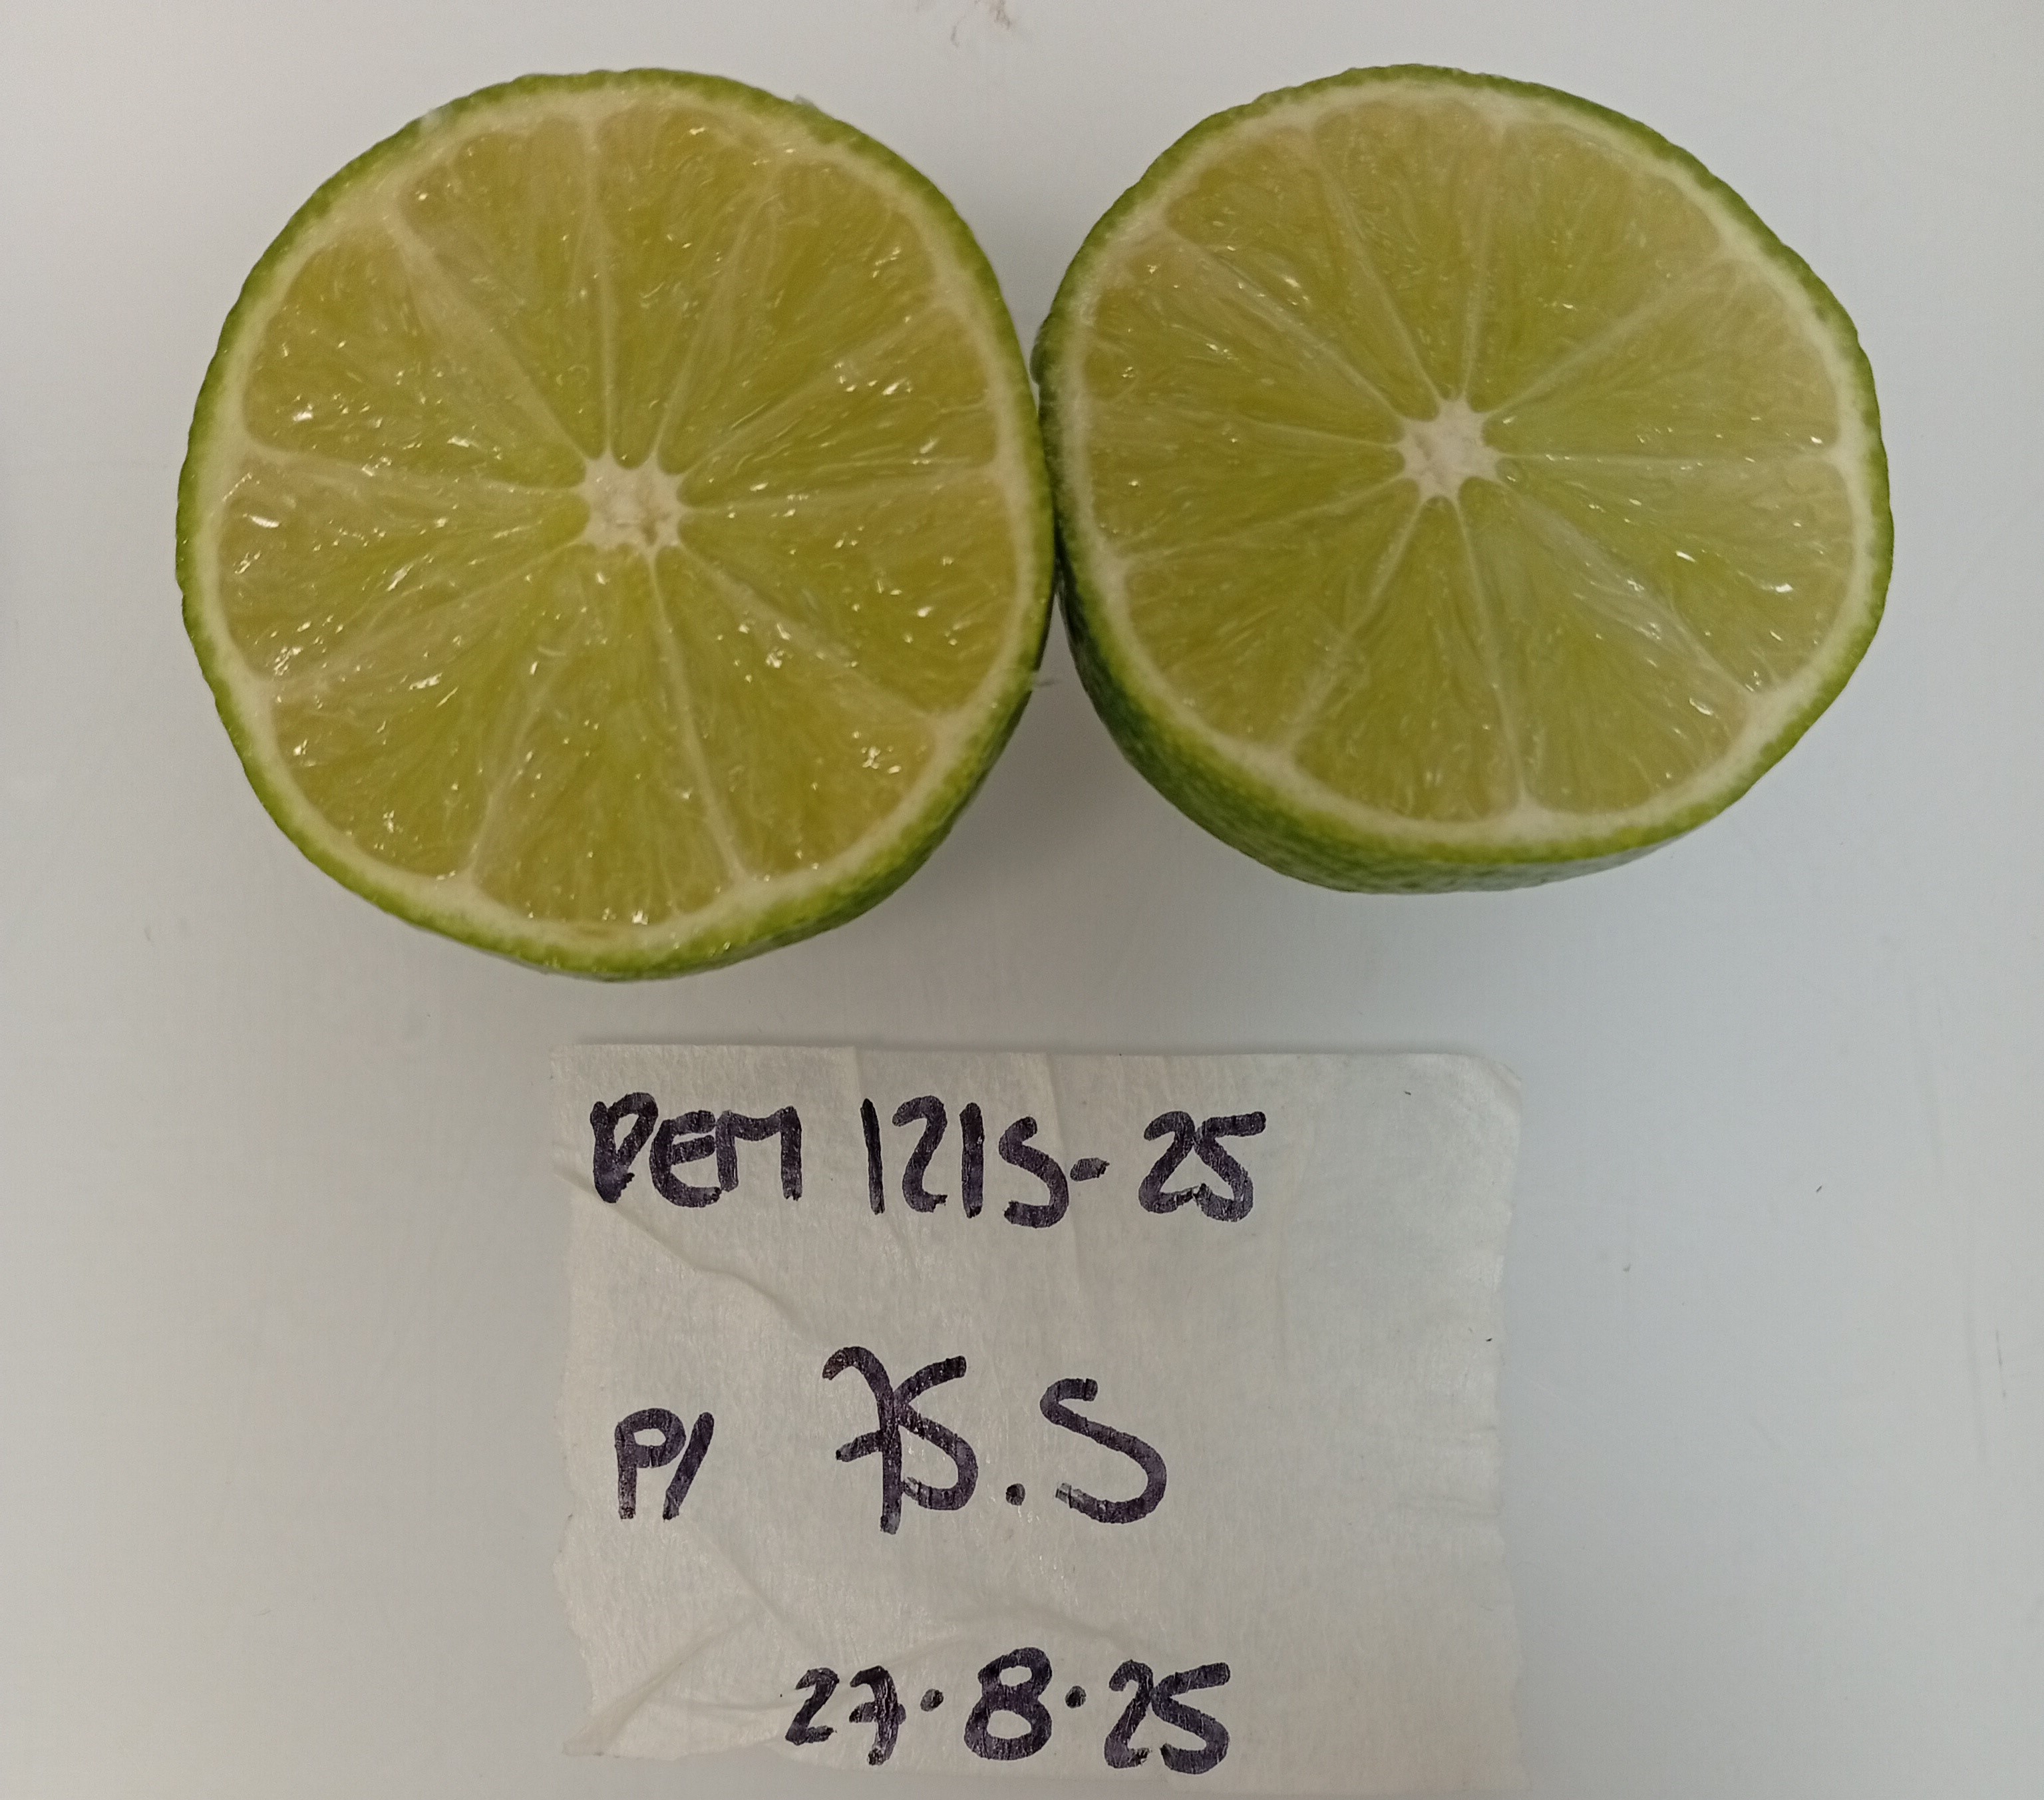 DEM 1215-25
P/ 75.5
27.8.25